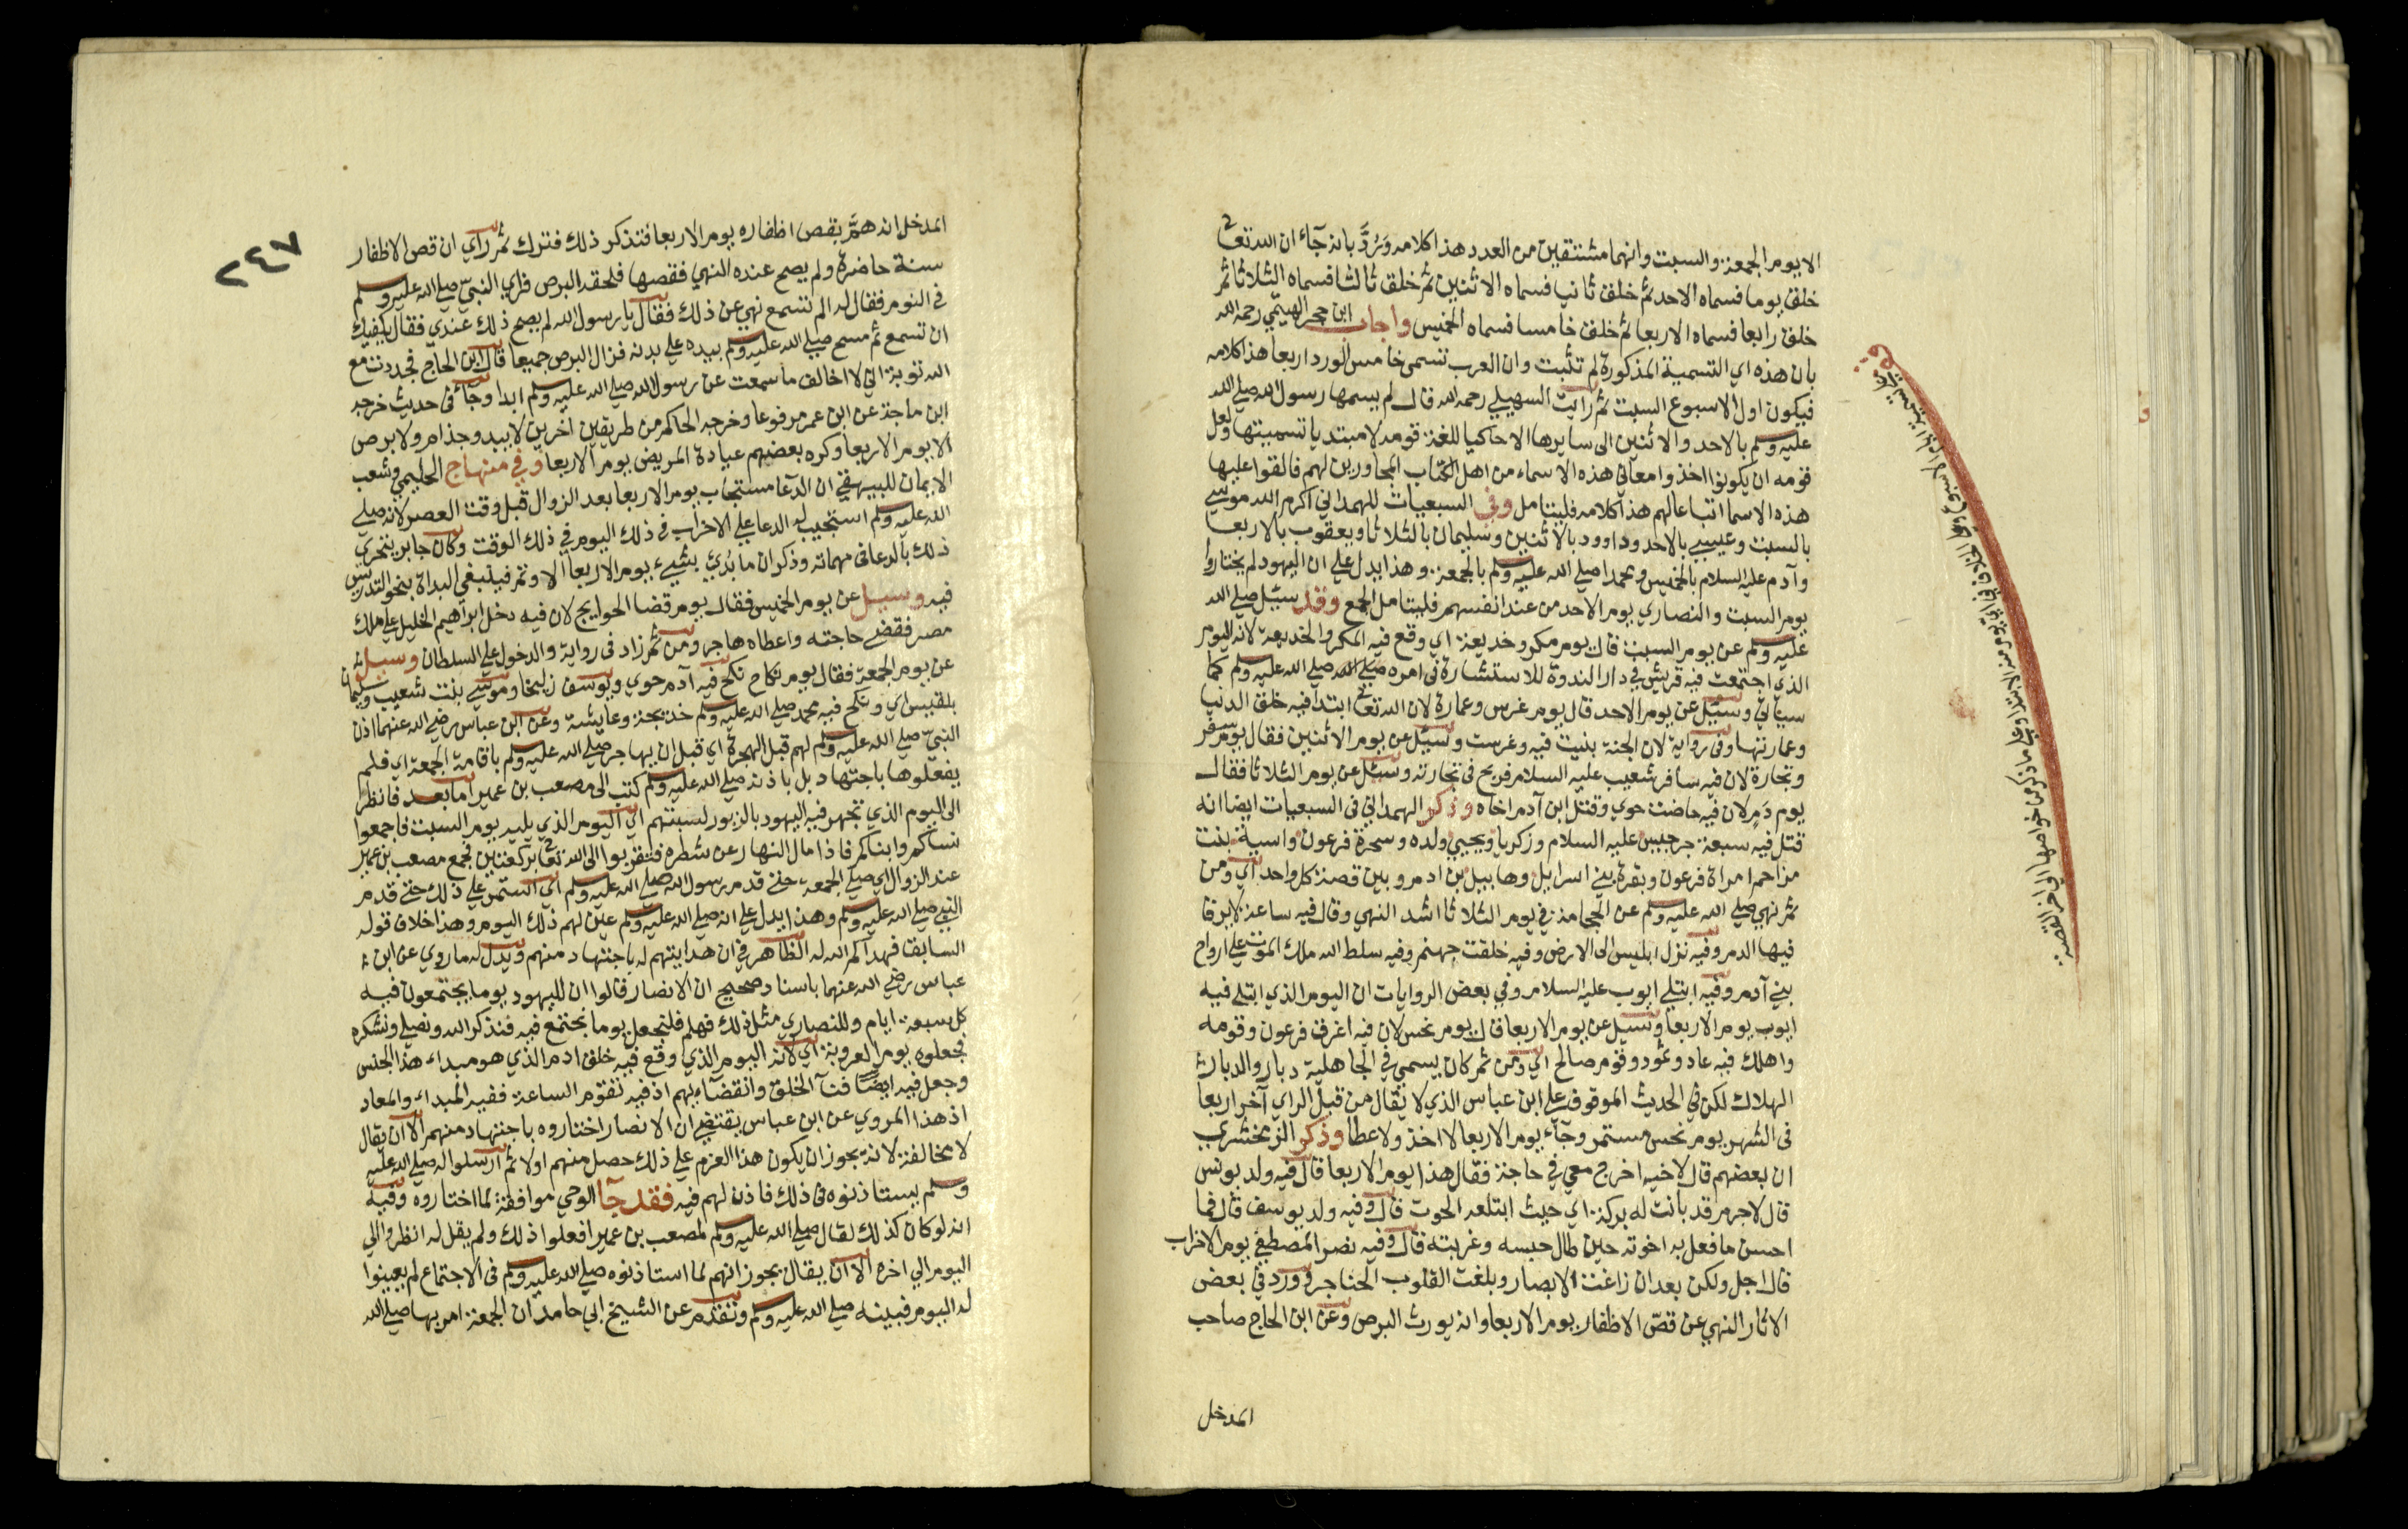 الا يوم الجمعة والسبت وانهما مشتقين من العدد هذا كلامه ورُدَّ بانه جآء ان الله تعالى
خلق يوما فسماه الاحد ثم خلق ثانيا فسماه الاثنين ثم خلق ثالثا فسماه الثلاثا ثم
خلق رابعا فسماه الاربعا ثم خلق خامسا فسماه الخميس واجاب ابن حجر الهيتمي رحمه الله
بان هذه اي التسمية المذكورة لم تثبت وان العرب تسمي خامس الورد اربعا هذا كلامه
فيكون اول الاسبوع السبت ثم رايت السهيلي رحمه الله قال لم يسمها رسول الله صلي الله
عليه وسلم بالاحد والاثنين الى سايرها الا حاكيا للغة قومه لا مبتديا تسميتها ولعل
قومه ان يكونوا اخذوا معاني هذه الاسماء من اهل الكتاب المجاورين لهم فالقوا عليها
هذه الاسما اتباعا لهم هذا كلامه فليتامل وفي السبعيات للهمداني اكرم الله موسي
بالسبت وعيسي بالاحد وداوود بالاثنين وسليمان بالثلاثا ويعقوب بالاربعا
وآدم عليه السلام بالخميس ومحمدا صلي الله عليه وسلم بالجمعة وهذا يدل علي ان اليهود لم يختاروا
يوم السبت والنصاري يوم الاحد من عند انفسهم فليتامل الجمع وقد سئل صلي الله
عليه وسلم عن يوم السبت قال يوم مكر وخديعة اي وقع فيه المكر والخديعة لانه اليوم
الذي اجتمعت فيه قريش في دار الندوة للاستشارة في امره صلي الله صلي الله عليه وسلم كما
سياتي وسئل عن يوم الاحد قال يوم غرس وعمارة لان الله تعالى ابتدا فيه خلق الدنيا
وعمارتها وفي رواية لان الجنة بنيت فيه وغرست وسئل عن يوم الاثنين فقال يوم سفر
وتجارة لان فيه سافر شعيب عليه السلام فربح في تجارته وسئل عن يوم الثلاثا فقال
يوم دم لان فيه حاضت حوي وقتل ابن آدم اخاه وذكر الهمداني في السبعيات ايضا انه
قتل فيه سبعة جرجيس عليه السلام وزكريا ويحيي ولده وسحرة فرعون واسية بنت
مزاحم امراة فرعون وبقرة بني اسرايل وهابيل بن ادم وبين قصة كل واحد اي ومن
ثم نهي صلي الله عليه وسلم عن الحجامة في يوم الثلاثا اشد النهي وقال فيه ساعة لا يرقا
فيها الدم وفيه نزل ابليس الى الارض وفيه خلقت جهنم وفيه سلط الله ملك الموت علي ارواح
بني آدم وفيه ابتلي ايوب عليه السلام وفي بعض الروايات ان اليوم الذي ابتلي فيه
ايوب يوم الاربعا وسئل عن يوم الاربعا قال يوم نحس لان فيه اغرق فرعون وقومه
واهلك فيه عاد وثمود وقوم صالح اي ومن ثم كان يسمي في الجاهلية دبار والدبار
الهلاك لكن في الحديث الموقوف علي ابن عباس الذي لا يقال من قبل الراي آخر اربعا
في الشهر يوم نحس مستمر وجآء يوم الاربعا لا اخذ ولا عطا وذكر الزمخشري
ان بعضهم قال لاخيه اخرج معي في حاجة فقال هذا يوم الاربعا قال فيه ولد يونس
قال لا جرم قد بانت له بركة اي حيث ابتلعه الحوت قال وفيه ولد يوسف قال فما
احسن ما فعل به اخوته حين طال حبسه وغربته قال وفيه نصر المصطفي يوم الاحزاب
قال اجل ولكن بعد ان زاغت الابصار وبلغت القلوب الحناجر وورد في بعض
الاثار النهي عن قص الاظفار يوم الاربعا وانه يورث البرص وعن ابن الحاج صاحب
المدخل
الاسبوع وبيان الخلاف في اي يوم منه الابتدا وعلى ما ذكر من خواصها الي اخر القصة
٢٤٧
المدخل انه همَّ بقص اظفاره يوم الاربعا فتذكر ذلك فترك ثم راي ان قص الاظفار
سنة حاضرة ولم يصح عنده النهي فقصها فلحقه البرص فراي النبي صلي الله عليه وسلم
في النوم فقال له الم تسمع نهي عن ذلك فقال يا رسول الله لم يصح ذلك عندي فقال يكفيك
ان تسمع ثم مسح صلي الله عليه وسلم بيده علي بدنه فزال البرص جميعا قال ابن الحاج فجددت مع
الله توبة اني لا اخالف ما سمعت عن رسول الله صلي الله عليه وسلم ابدا وجآء في حديث خرجه
ابن ماجة عن ابن عمر مرفوعا وخرجه الحاكم من طريقين اخرين لا يبدو جذام ولا برص
الا يوم الاربعا وكره بعضهم عيادة المريض يوم الاربعا وفي منهاج الحليمي وشعب
الايمان للبيهقي ان الدعا مستجاب يوم الاربعا بعد الزوال قبل وقت العصر لانه صلي
الله عليه وسلم استجيب له الدعا علي الاحزاب في ذلك اليوم في ذلك الوقت وكان جابر يتحري
ذلك بالدعا في مهماته وذكر ان ما بُدي بشيء يوم الاربعا الا وتم فينبغي البداة بنحو التدريس
فيه وسيل عن يوم الخميس فقال يوم قضا الحوايج لان فيه دخل ابراهيم الخليل علي ملك
مصر فقضي حاجته واعطاه هاجر ومن ثم زاد في رواية والدخول علي السلطان وسيل
عن يوم الجمعة فقال يوم نكاح نكح فيه آدم حوي ويوسف زليخا وموسي بنت شعيب وسليمان
بلقيس اي ونكح فيه محمد صلي الله عليه وسلم خديجة وعايشة وعن ابن عباس رضي الله عنهما اذن
النبي صلي الله عليه وسلم لهم قبل الهجرة اي قبل ان يهاجر صلي الله عليه وسلم باقامة الجمعة اي فلم
يفعلوها باجتهاد بل باذنه صلي الله عليه وسلم كتب الى مصعب بن عمير اما بعد فانظر
الى اليوم الذي تجهر فيه اليهود بالزبور لسبتهم اي اليوم الذي يليه يوم السبت فاجمعوا
نساكم وابناكم فاذا مال النهار عن شطره فتقربوا الى الله تعالى بركعتين فجمع مصعب بن عمير
عند الزوال اي صلي الجمعة حتي قدم رسول الله صلي الله عليه وسلم اي استمر علي ذلك حتي قدم
النبي صلي الله عليه وسلم وهذا يدل علي انه صلي الله عليه وسلم عين لهم ذلك اليوم وهذا خلاف قوله
السابق فهداكم الله له الظاهر في ان هدايتهم له باجتهاد منهم ويدل له ما روي عن ابن
عباس رضي الله عنهما باسناد صحيح ان الانصار قالوا ان لليهود يوما يجتمعون فيه
كل سبعة ايام وللنصاري مثل ذلك فهلم فلنجعل يوما نجتمع فيه فنذكر الله ونصلي ونشكره
فجعلوه يوم العروبة اي لانه اليوم الذي وقع فيه خلق ادم الذي هو مبداء هذا الجنس
وجعل فيه ايضا فنآ الخلق وانقضآءيهم اذ فيه تقوم الساعة ففيه المبداء والمعاد
اذ هذا المروي عن ابن عباس يقتضي ان الانصار اختاروه باجتهاد منهم الا ان يقال
لا مخالفة لانه يجوز ان يكون هذا العزم علي ذلك حصل منهم اولا ثم ارسلوا له صلي الله عليه
وسلم يستاذنوه في ذلك فاذن لهم فيه فقد جآ الوحي موافقة لما اختاروه وفيه
انه لو كان كذلك لقال صلي الله عليه وسلم لمصعب بن عمير افعلوا ذلك ولم يقل له انظروا الي
اليوم الي اخره الا ان يقال يجوز انهم لما استاذنوه صلي الله عليه وسلم في الاجتماع لم يعينوا
له اليوم فبينه صلي الله عليه وسلم وتقدم عن الشيخ ابي حامد ان الجمعة امر بها صلي الله